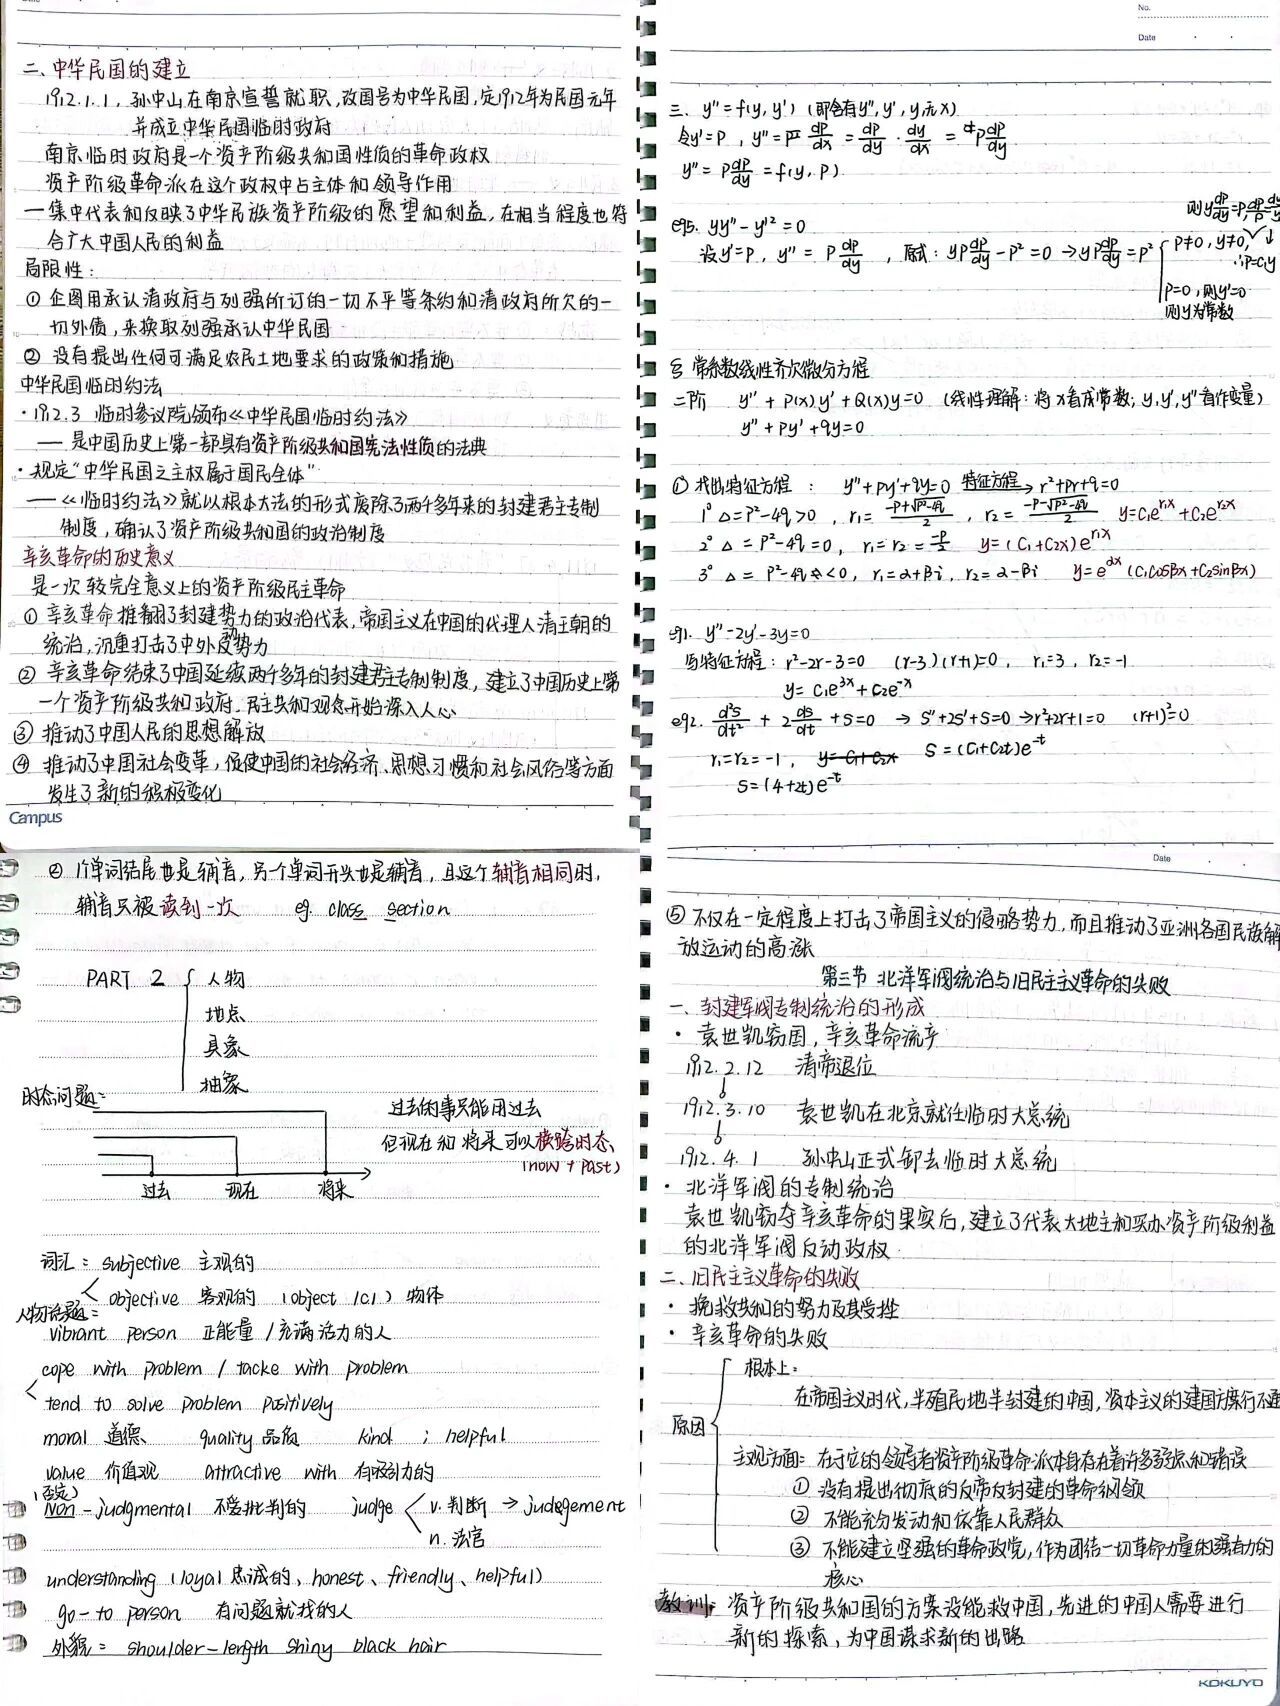 二、中华民国的建立
1912.1.1,孙中山在南京宣誓就职,改国号为中华民国,定1912年为民国元年
并成立中华民国临时政府
南京临时政府是一个资产阶级共和国性质的革命政权
资产阶级革命派在这个政权中占主体和领导作用
—集中代表和反映了中华民族资产阶级的愿望和利益,在相当程度也符
合广大中国人民的利益
局限性:
① 企图用承认清政府与列强所订的一切不平等条约和清政府所欠的一
切外债,来换取列强承认中华民国
② 没有提出任何可满足农民土地要求的政策和措施
中华民国临时约法
·1912.3 临时参议院颁布《中华民国临时约法》
—— 是中国历史上第一部具有资产阶级共和国宪法性质的法典
·规定“中华民国之主权属于国民全体”
——《临时约法》就以根本大法的形式废除了两千多年来的封建君主专制
制度,确认了资产阶级共和国的政治制度
辛亥革命的历史意义
是一次较完全意义上的资产阶级民主革命
① 辛亥革命推翻了封建势力的政治代表,帝国主义在中国的代理人清王朝的
统治,沉重打击了中外反动势力
② 辛亥革命结束了中国延续两千多年的封建君主专制制度,建立了中国历史上第
一个资产阶级共和政府.民主共和观念开始深入人心
③ 推动了中国人民的思想解放
④ 推动了中国社会变革,促使中国的社会经济、思想习惯和社会风俗等方面
发生了新的积极变化
Campus
No.
Date
三. y''=f(y,y')(即含有y'',y',y,无x)
令y'=P, y''= dp/dx = dp/dy · dy/dx = P dp/dy
y''= P dp/dy = f(y,P)
eg5. yy''-y'²=0
设y'=P, y''= P dp/dy, 原式: yP dp/dy - P²=0 → yP dp/dy = P²
P≠0, y≠0,
∴P=C₁y
P=0,则y'=0
则y为常数
常系数线性齐次微分方程
二阶 y''+P(x)y'+Q(x)y=0 (线性理解:将x看成常数; y,y',y''看作变量)
y''+Py'+qy=0
① 找出特征方程: y''+Py'+qy=0 特征方程→ r²+Pr+q=0
1° Δ=P²-4q>0, r₁= (-P+√P²-4q)/2, r₂= (-P-√P²-4q)/2 y=C₁e^r₁x+C₂e^r₂x
2° Δ=P²-4q=0, r₁=r₂= -P/2 y=(C₁+C₂x)e^r₁x
3° Δ=P²-4q<0, r₁=α+βi, r₂=α-βi y=e^αx(C₁cosβx+C₂sinβx)
eg1. y''-2y'-3y=0
写特征方程: r²-2r-3=0 (r-3)(r+1)=0, r₁=3, r₂=-1
y=C₁e^3x+C₂e^-x
eg2. d²s/dt² + 2 ds/dt +s=0 → s''+2s'+s=0 →r²+2r+1=0 (r+1)²=0
r₁=r₂=-1, y=C₁+C₂x S=(C₁+C₂t)e^-t
S=(4+2t)e^-t
② 1个单词结尾也是辅音,另一个单词开头也是辅音,且这个辅音相同时,
辅音只被读到一次 eg. class section
PART 2 { 人物
地点
具象
抽象
时态问题:
过去的事只能用过去
但现在和将来可以横跨时态
(now + past)
过去 现在 将来
词汇: subjective 主观的
objective 客观的 (object [c] 物体
人物话题:
vibrant person 正能量/充满活力的人
cope with problem / tacke with problem
tend to solve problem positively
moral 道德、 quality 品质 kind ; helpful
value 价值观 attractive with 有吸引力的
(否定)
Non-judgmental 不爱批判的 judge < v.判断 → judgement
n.法官
understanding (loyal 忠诚的、honest、friendly、helpful)
go-to person 有问题就找的人
外貌: shoulder-length shiny black hair
Date
⑤ 不仅在一定程度上打击了帝国主义的侵略势力,而且推动了亚洲各国民族解
放运动的高涨
第三节 北洋军阀统治与旧民主主义革命的失败
一、封建军阀专制统治的形成
· 袁世凯窃国,辛亥革命流产
1912.2.12 清帝退位
1912.3.10 袁世凯在北京就任临时大总统
1912.4.1 孙中山正式卸去临时大总统
· 北洋军阀的专制统治
袁世凯窃夺辛亥革命的果实后,建立了代表大地主和买办资产阶级利益
的北洋军阀反动政权.
二、旧民主主义革命的失败
· 挽救共和的努力及其受挫
· 辛亥革命的失败
根本上:
在帝国主义时代,半殖民地半封建的中国,资本主义的建国方案行不通
原因
主观方面: 在于它的领导者资产阶级革命派本身存在着许多弱点和错误
① 没有提出彻底的反帝反封建的革命纲领
② 不能充分发动和依靠人民群众
③ 不能建立坚强的革命政党,作为团结一切革命力量的强有力的
核心
教训: 资产阶级共和国的方案没能救中国,先进的中国人需要进行
新的探索,为中国谋求新的出路
KOKUYO